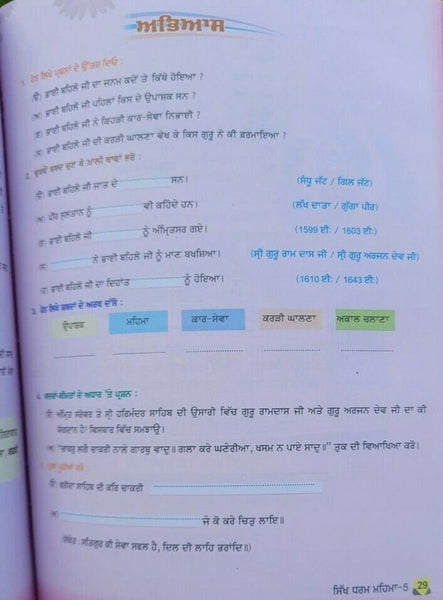 ਅਭਿਆਸ
1. ਹੇਠ ਲਿਖੇ ਪ੍ਰਸ਼ਨਾਂ ਦੇ ਉੱਤਰ ਦਿਓ :
(ੳ) ਭਾਈ ਬਹਿਲੋ ਜੀ ਦਾ ਜਨਮ ਕਦੋਂ ਤੇ ਕਿੱਥੇ ਹੋਇਆ ?
(ਅ) ਭਾਈ ਬਹਿਲੋ ਜੀ ਪਹਿਲਾਂ ਕਿਸ ਦੇ ਉਪਾਸ਼ਕ ਸਨ ?
(ੲ) ਭਾਈ ਬਹਿਲੋ ਜੀ ਨੇ ਕਿਹੜੀ ਕਾਰ-ਸੇਵਾ ਨਿਭਾਈ ?
(ਸ) ਭਾਈ ਬਹਿਲੋ ਜੀ ਦੀ ਕਰੜੀ ਘਾਲਣਾ ਵੇਖ ਕੇ ਕਿਸ ਗੁਰੂ ਨੇ ਕੀ ਫ਼ਰਮਾਇਆ ?
2. ਢੁਕਵੇਂ ਸ਼ਬਦ ਚੁਣ ਕੇ ਖ਼ਾਲੀ ਥਾਵਾਂ ਭਰੋ :
(ੳ) ਭਾਈ ਬਹਿਲੋ ਜੀ ਜਾਤ ਦੇ ਸਨ। (ਸੰਧੂ ਜੱਟ / ਗਿਲ ਜੱਟ)
(ਅ) ਪੀਰ ਸੁਲਤਾਨ ਨੂੰ ਵੀ ਕਹਿੰਦੇ ਹਨ। (ਲੱਖ ਦਾਤਾ / ਗੁੱਗਾ ਪੀਰ)
(ੲ) ਭਾਈ ਬਹਿਲੋ ਜੀ ਨੂੰ ਅੰਮ੍ਰਿਤਸਰ ਗਏ। (1599 ਈ: / 1603 ਈ:)
(ਸ) ਨੇ ਭਾਈ ਬਹਿਲੋ ਜੀ ਨੂੰ ਮਾਣ ਬਖਸ਼ਿਆ। (ਸ੍ਰੀ ਗੁਰੂ ਰਾਮ ਦਾਸ ਜੀ / ਸ੍ਰੀ ਗੁਰੂ ਅਰਜਨ ਦੇਵ ਜੀ)
(ਹ) ਭਾਈ ਬਹਿਲੋ ਜੀ ਦਾ ਦਿਹਾਂਤ ਨੂੰ ਹੋਇਆ। (1610 ਈ: / 1643 ਈ:)
3. ਹੇਠ ਲਿਖੇ ਸ਼ਬਦਾਂ ਦੇ ਅਰਥ ਦੱਸੋ :
ਉਪਾਸ਼ਕ ਮਹਿਮਾ ਕਾਰ-ਸੇਵਾ ਕਰੜੀ ਘਾਲਣਾ ਅਕਾਲ ਚਲਾਣਾ
4. ਕਦਰਾਂ-ਕੀਮਤਾਂ ਦੇ ਅਧਾਰ 'ਤੇ ਪ੍ਰਸ਼ਨ :
(ੳ) ਅੰਮ੍ਰਿਤ ਸਰੋਵਰ ਤੇ ਸ੍ਰੀ ਹਰਿਮੰਦਰ ਸਾਹਿਬ ਦੀ ਉਸਾਰੀ ਵਿੱਚ ਗੁਰੂ ਰਾਮਦਾਸ ਜੀ ਅਤੇ ਗੁਰੂ ਅਰਜਨ ਦੇਵ ਜੀ ਦਾ ਕੀ
ਯੋਗਦਾਨ ਹੈ? ਵਿਸਥਾਰ ਵਿੱਚ ਸਮਝਾਉ।
(ਅ) "ਚਾਕਰੁ ਲਗੈ ਚਾਕਰੀ ਨਾਲੇ ਗਾਰਬੁ ਵਾਦੁ॥ ਗਲਾ ਕਰੇ ਘਣੇਰੀਆ, ਖਸਮ ਨ ਪਾਏ ਸਾਦੁ॥" ਤੁਕ ਦੀ ਵਿਆਖਿਆ ਕਰੋ।
5. ਤੁਕਾਂ ਪੂਰੀਆਂ ਕਰੋ :
(ੳ) ਬਜਿੰਦ ਸਾਹਿਬ ਦੀ ਕਰਿ ਚਾਕਰੀ
(ਅ) ਜੇ ਕੋ ਕਰੇ ਚਿਤੁ ਲਾਇ॥
(ਸੰਕੇਤ: ਸਤਿਗੁਰ ਕੀ ਸੇਵਾ ਸਫਲ ਹੈ, ਦਿਲ ਦੀ ਲਾਹਿ ਭਰਾਂਦਿ॥)
ਸਿੱਖ ਧਰਮ ਮਹਿਮਾ-5 29